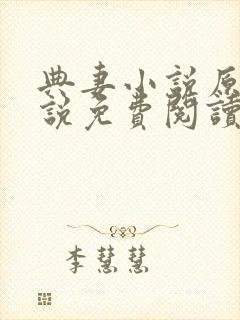 典妻小說原
說免費閱讀
李慧慧